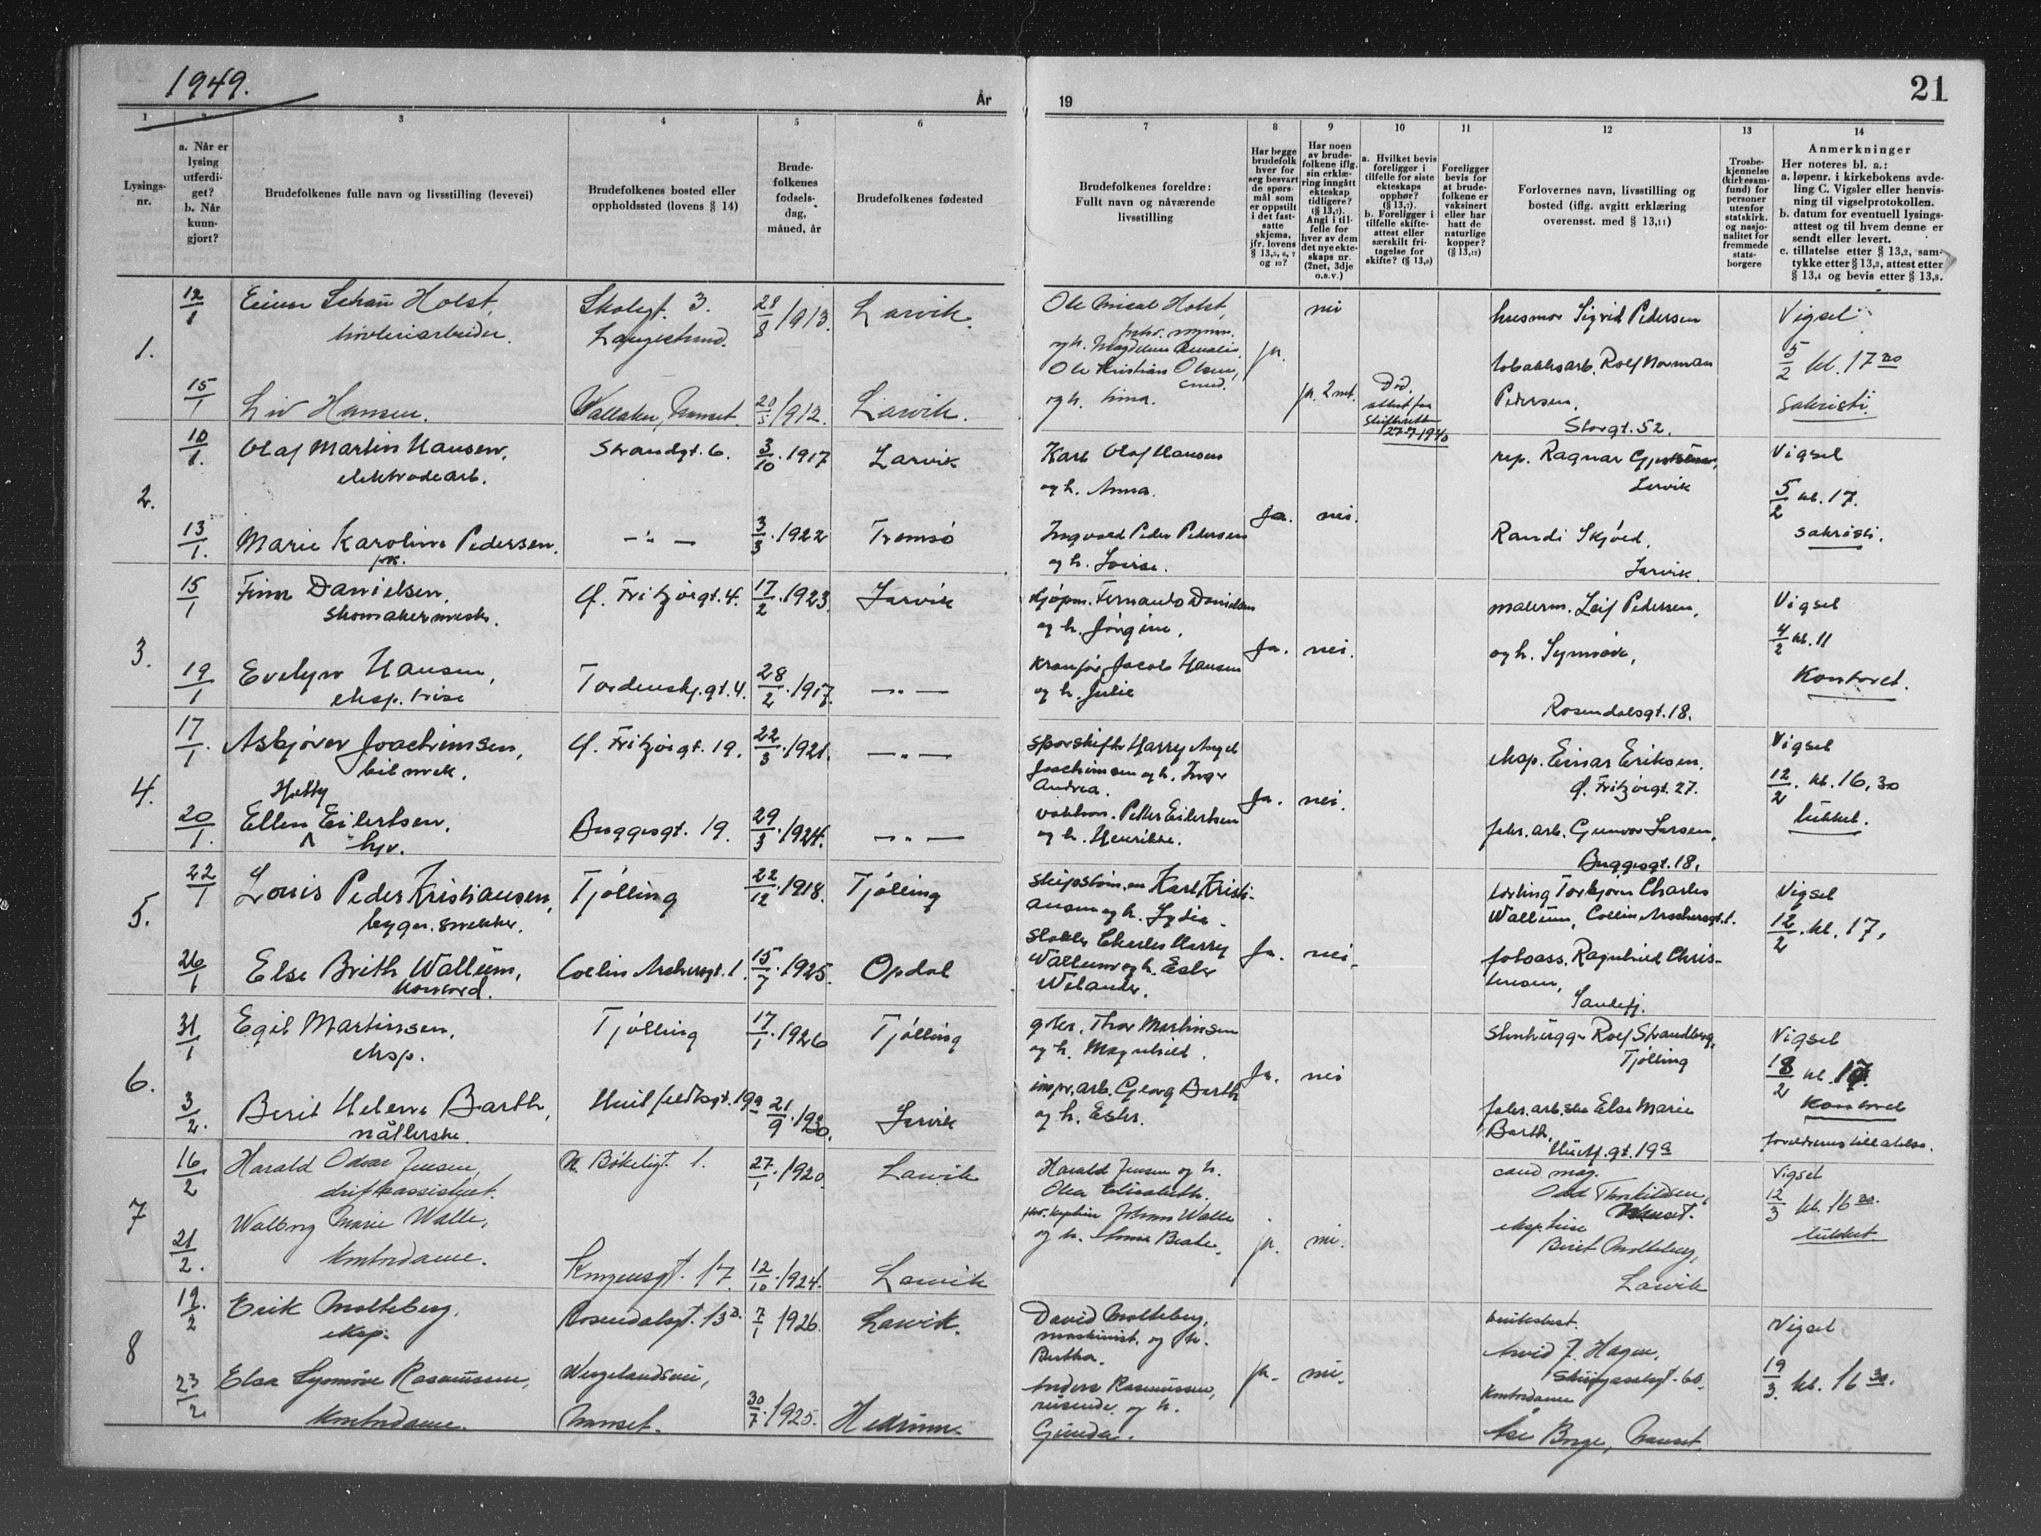 1949.
År
19
21
1
2
3
4
5
6
7
8
9
10
11
12
13
14
Lysings-
nr.
a. Når er
lysing
utferdi-
get?
b. Når
kunn-
gjort?
Brudefolkenes fulle navn og livsstilling (levevei)
Brudefolkenes bosted eller
oppholdssted (lovens § 14)
Brude-
folkenes
fødsels-
dag,
måned, år
Brudefolkenes fødested
Brudefolkenes foreldre:
Fullt navn og nåværende
livsstilling
Har begge
brudefolk
hver for
seg besvart
de spørs-
mål som
er oppstilt
i det fast-
satte
skjema,
jfr. lovens
§ 13,5, 6, 7
og 10?
Har noen
av brude-
folkene iflg.
sin erklæ-
ring inngått
ekteskap
tidligere?
(§ 13,7).
Angi i til-
felle for
hver av dem
det nye ekte-
skaps nr.
(2net, 3dje
o.s.v.)
a. Hvilket bevis
foreligger i
tilfelle for siste
ekteskaps
opphør?
(§ 13,7).
b. Foreligger i
tilfelle skifte-
attest eller
særskilt fri-
tagelse for
skifte? (§ 13,8)
Foreligger
bevis for
at brude-
folkene er
vaksinert
eller har
hatt de
naturlige
kopper?
(§ 13,12)
Forlovernes navn, livsstilling og
bosted (iflg. avgitt erklæring
overensst. med § 13,11)
Trosbe-
kjennelse
(kirkesam-
fund) for
personer
utenfor
statskirk.
og nasjo-
nalitet for
fremmede
stats-
borgere
Anmerkninger
Her noteres bl. a.:
a. løpenr. i kirkebokens avde-
ling C. Vigsler eller henvis-
ning til vigselprotokollen.
b. datum for eventuell lysings-
attest og til hvem denne er
sendt eller levert.
c. tillatelse etter § 13,2, sam-
tykke etter § 13,3, attest etter
§ 13,4 og bevis etter § 13,8.
1.
12/1 Holst, Skolegt. 3. 28/8 1913. Larvik. Ole Holst, nei husmor Sigrid Pedersen Vigsel
høvleriarbeider. Langestrand.
og h. Magdalena Amalie, ja. tobakksarb. Rolf Norman 5/2 kl. 17 30
Ole Kristian Olsen, smed.
15/1 Liv Hansen. Nanset. 20/5 1912. Larvik. og h. ja 2net. Død. Pedersen, Sakristi.
27-7-1940 Storgt. 52.
2.
10/1. Olaf Martin Hansen, Strandgt. 6. 3/10. 1917 Larvik Karl Olaf Hansen rep. Ragnar Vigsel
elektrodearb. og h. Anna. Larvik 5/2 kl. 17.
Ja. nei.
13/1. Marie Karoline Pedersen, -"- 3/3. 1922 Tromsø Ingvald Peder Pedersen Randi Skjøed, sakristi.
frk. og h. Lovise. Larvik.
3.
15/1 Finn Danielsen, Q. Fritzøegt. 4. 17/2. 1923. Larvik Fernando Danielsen malerm. Leif Pedersen, Vigsel
skomakermester. og h. Jørgine, 4/2 kl. 11
Ja. nei. og h. Synnøve,
19/1 Evelyn Hansen, Tordenskj.gt. 4. 28/2. 1917. -"- Jacob Hansen Kontoret.
eksp.trise og h. Julie Rosendalsgt. 18.
4.
17/1. Asbjørn Joachimsen, Q. Fritzøegt. 19. 22/3. 1921. -"- Harry Angel Vigsel
bilmek. Joachimsen og h. Inger eksp. Einar Eriksen, 12/2. kl. 16,30
Hetty Andrea. Ja. nei. Q. Fritzøegt. 27.
20/1. Ellen Eilertsen, Buggesgt. 19. 29/3. 1924. -"- Petter Eilertsen fabr. arb. Gunvor Larsen, lukket.
hjv. og h. Henrikke. Buggesgt. 18.
5.
22/1 Louis Peder Kristiansen, Tjølling 22/12. 1918. Tjølling skipstøm.m Karl Kristi- lærling Torbjørn Charles Vigsel
bygn. snekker. ansen og h. Lydia. Wallum, Colin Archersgt. 1. 12/2. kl. 17,
26/1 Else Brith Wallum, Colin Archersgt. 1. 15/7. 1925. Opdal Charles Harry Ja. nei. Ragnhild Chris-
Wallum og h. Ester tensen,
Welander. Sandefj.
6.
31/1 Egil Martinsen, Tjølling 17/1. 1926 Tjølling Thor Martinsen Rolf Strandberg, Vigsel
eksp. og h. Magnhild. Tjølling 18/2 kl. 17.
Ja. nei Kontoret
3/2. Berit Helene Barth, Huitfeldtsgt. 19a 21/9. 1930. Larvik Georg Barth fabr. arb.ske Else Marie
og h. Ester. Barth, foreldrenes tillatelse.
Huitf.gt. 19a
7
16/2 Harald Odvar Jensen, N. Bøkeligt 1. 27/1. 1920. Larvik Harald Jensen og h. cand mag. Vigsel
driftsassistent. Olea Elisabeth. Odd Thorkildsen, 12/3 kl. 16 30.
Walborg Marie Walle, Johan Walle Nanset. lukket.
21/2. kontordame. Kongensgt. 17 12/10. 1924. Larvik og h. ja. nei. Berit Molteberg,
Larvik
8
19/2 Erik Molteberg, Rosendalsgt. 13a. 7/1 1926. Larvik. David Molteberg, Vigsel
eksp. maskinist. og h. Arvid J. Hagen,
Bertha. ja. nei. 19/3. kl. 16 30.
23/2 Elsa Synnøve Rasmussen, Wergelandsvei, Anders Rasmussen, Kontordame
kontordame. Nanset. 30/7. 1925. Hedrum. reisende. og h.
Gunda. Åse Borge, Nanset.